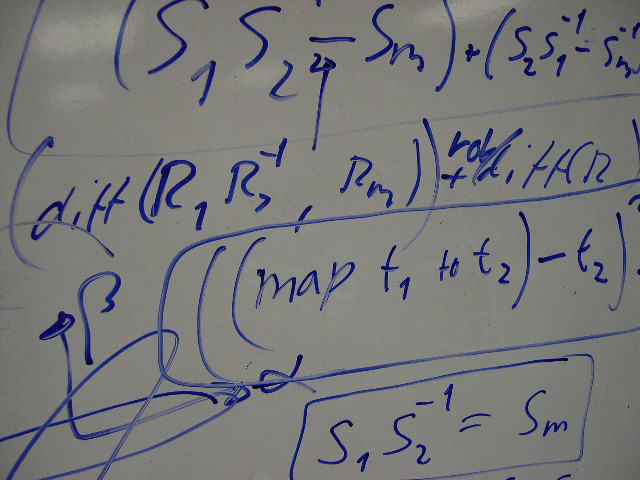 (S₁ S₂ - Sₘ) + (S₂ S₁⁻¹ - Sₘ⁻¹
(diff(R₁ R₂⁻¹, Rₘ) + diff(R
((map t₁ to t₂) - t₂)²
β
α
S₁ S₂⁻¹ = Sₘ